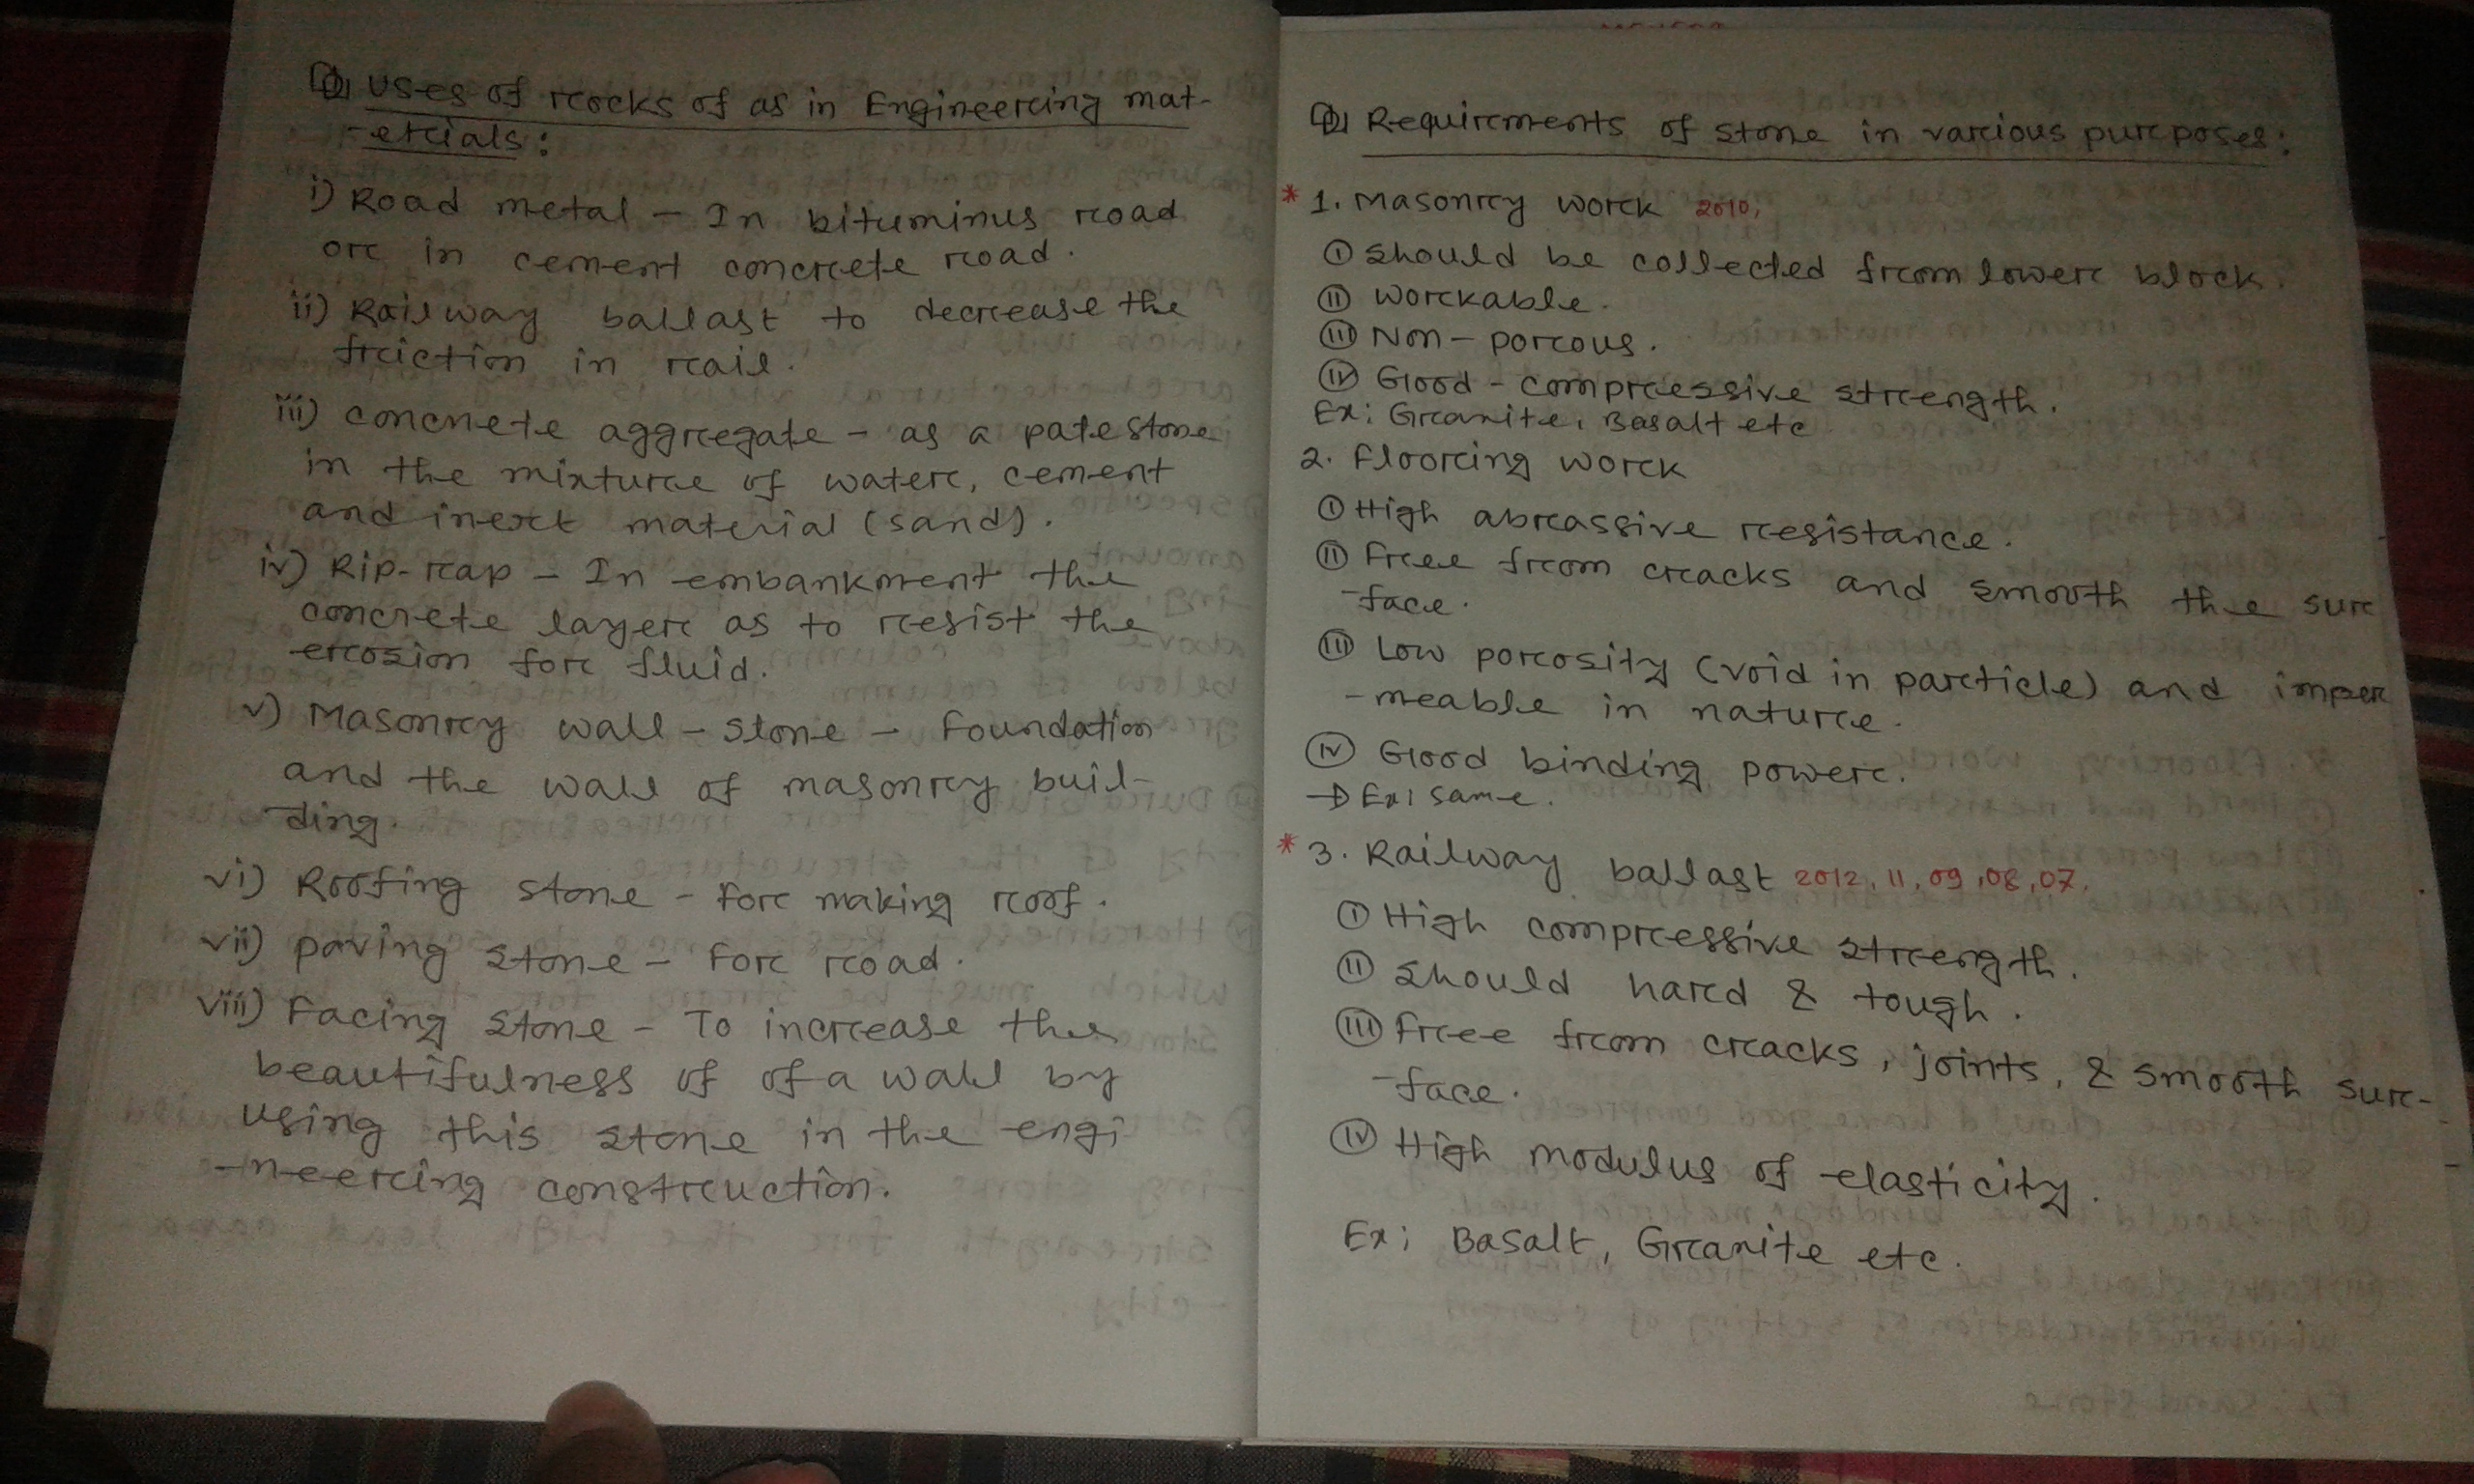 Uses of rocks of as in Engineering mat-
-erials:
i) Road metal – In bituminus road
or in cement concrete road.
ii) Railway ballast to decrease the
friction in rail.
iii) concrete aggregate – as a
in the mixture of water, cement
and inert material (sand).
iv) Rip-rap – In embankment the
concrete layer as to resist the
erosion for fluid.
v) Masonry wall – stone – Foundation
and the wall of masonry buil-
ding.
vi) Roofing stone – For making roof.
vii) paving stone – For road.
viii) Facing stone – To increase the
beautifulness of of a wall by
using this stone in the engi
-neering construction.
Requirments of stone in various purposes:
* 1. Masonry work 2010,
I should be collected from lower block.
II workable.
III Non-porous.
IV Good-compressive strength.
Ex: Granite, Basalt etc
2. Flooring work
I High abrassive resistance.
II Free from cracks and smooth the sur
-face.
III Low porosity (void in particle) and imper
-meable in nature.
IV Good binding power.
→ Ex: same.
* 3. Railway ballast 2012, 11, 09, 08, 07,
I High compressive strength.
II should hard & tough.
III Free from cracks, joints, & smooth sur-
-face.
IV High modulus of elasticity.
Ex: Basalt, Granite etc.